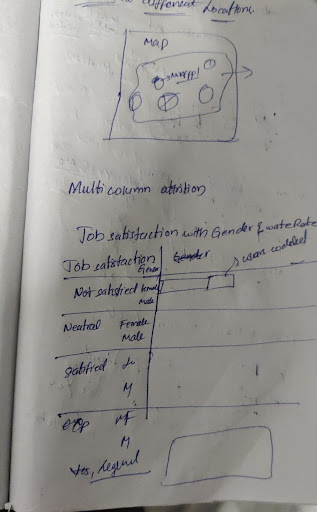 to different Locations
MAP
Multi column attrition
Job satisfaction with Gender &
Job satisfaction Gender
Not satisfied Female
male
Neutral Female
Male
Satisfied
M
M
Yes, Legend